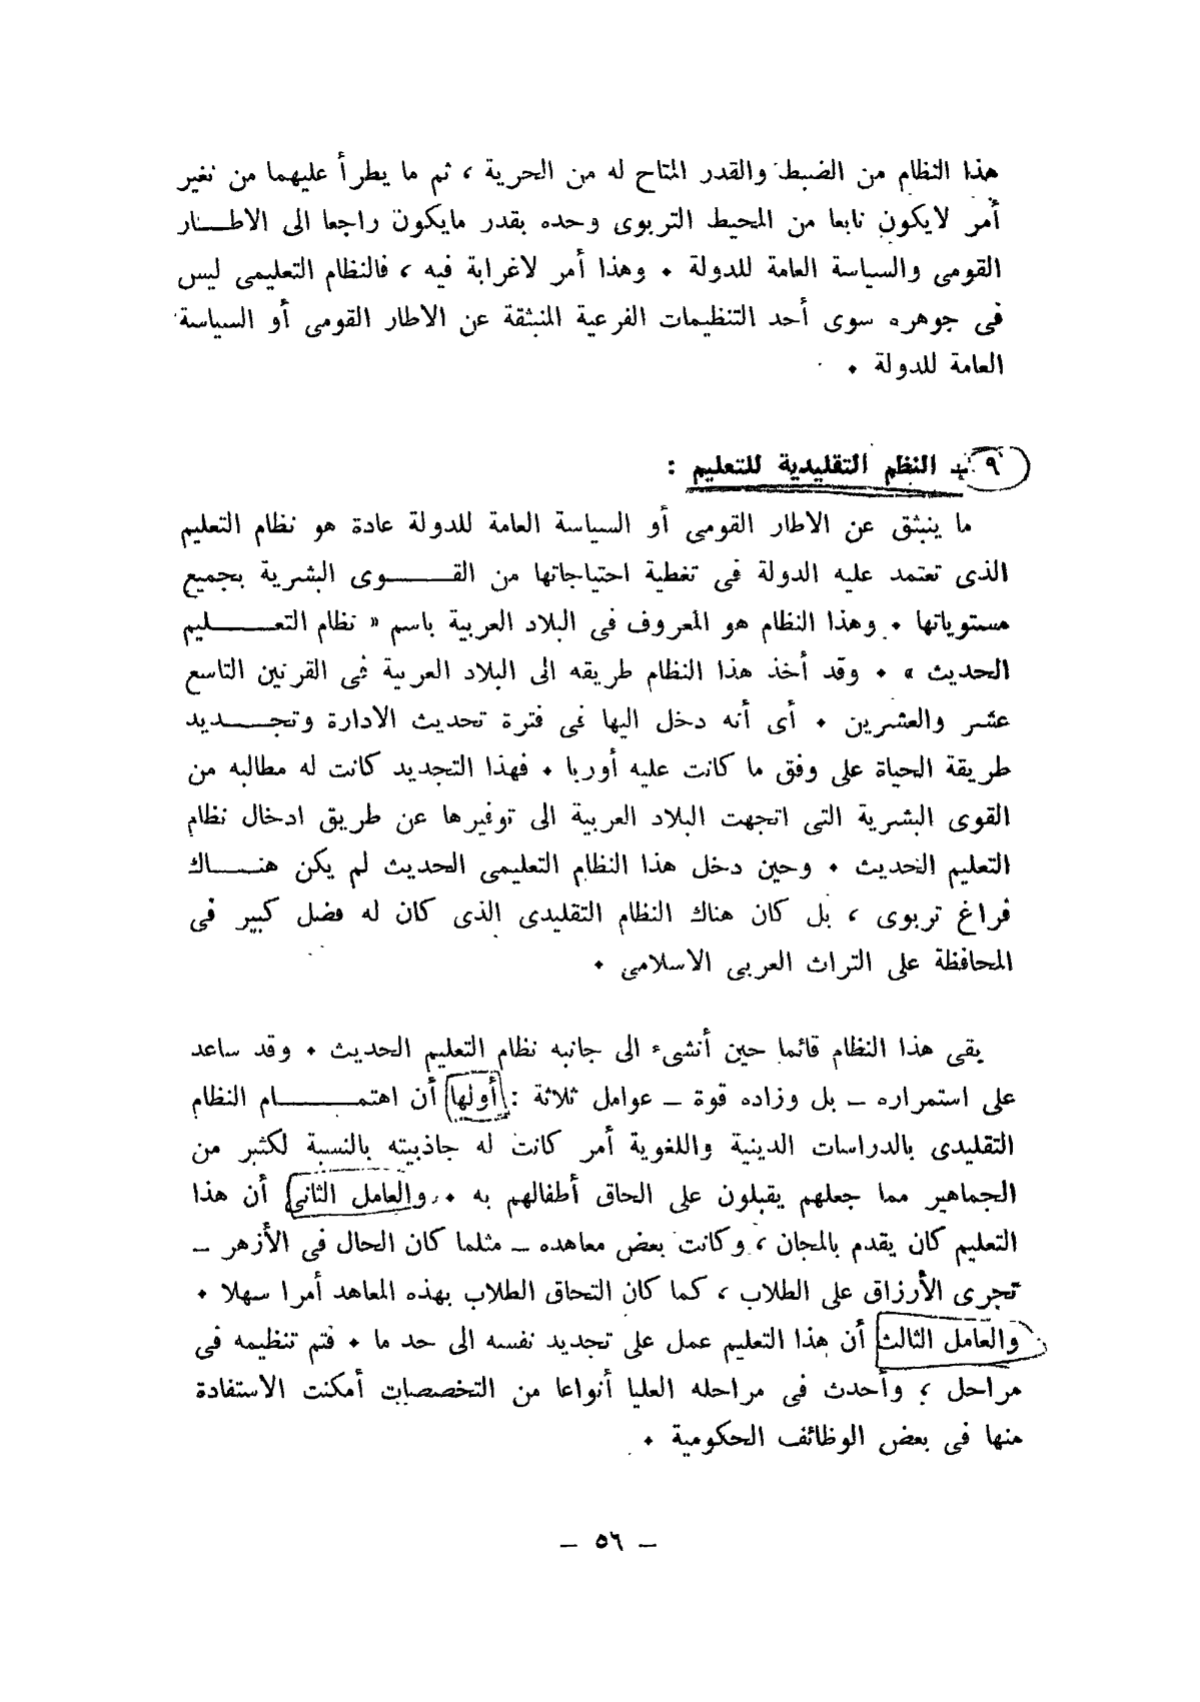 هذا النظام من الضبط والقدر المتاح له من الحرية ، ثم ما يطرأ عليهما من تغير
أمر لايكون نابعا من المحيط التربوى وحده بقدر مايكون راجعا الى الاطـــار
القومى والسياسة العامة للدولة • وهذا أمر لاغرابة فيه ، فالنظام التعليمى ليس
فى جوهره سوى أحد التنظيمات الفرعية المنبثقة عن الاطار القومى أو السياسة
العامة للدولة •
٩ - النظم التقليدية للتعليم :
ما ينبثق عن الاطار القومى أو السياسة العامة للدولة عادة هو نظام التعليم
الذى تعتمد عليه الدولة فى تغطية احتياجاتها من القـــــوى البشرية بجميع
مستوياتها • وهذا النظام هو المعروف فى البلاد العربية باسم « نظام التعـــــليم
الحديث » • وقد أخذ هذا النظام طريقه الى البلاد العربية فى القرنين التاسع
عشر والعشرين • أى أنه دخل اليها فى فترة تحديث الادارة وتجـــديد
طريقة الحياة على وفق ما كانت عليه أوربا • فهذا التجديد كانت له مطالبه من
القوى البشرية التى اتجهت البلاد العربية الى توفيرها عن طريق ادخال نظام
التعليم الحديث • وحين دخل هذا النظام التعليمى الحديث لم يكن هنـــاك
فراغ تربوى ، بل كان هناك النظام التقليدى الذى كان له فضل كبير فى
المحافظة على التراث العربى الاسلامى •
بقى هذا النظام قائما حين أنشىء الى جانبه نظام التعليم الحديث • وقد ساعد
على استمراره ــ بل وزاده قوة ــ عوامل ثلاثة : أولها أن اهتمـــــــام النظام
التقليدى بالدراسات الدينية واللغوية أمر كانت له جاذبيته بالنسبة لكثير من
الجماهير مما جعلهم يقبلون على الحاق أطفالهم به • والعامل الثانى أن هذا
التعليم كان يقدم بالمجان ، وكانت بعض معاهده ــ مثلما كان الحال فى الأزهر ــ
تجرى الأرزاق على الطلاب ، كما كان التحاق الطلاب بهذه المعاهد أمرا سهلا •
والعامل الثالث أن هذا التعليم عمل على تجديد نفسه الى حد ما • فتم تنظيمه فى
مراحل ، وأحدث فى مراحله العليا أنواعا من التخصصات أمكنت الاستفادة
منها فى بعض الوظائف الحكومية •
ــ ٥٦ ــ